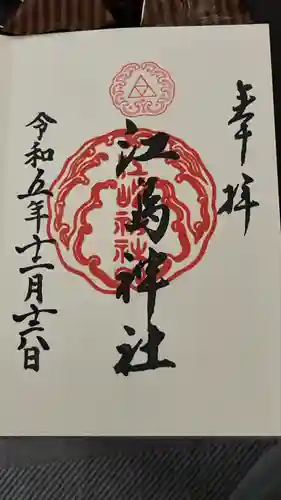 奉拝
江島神社
江嶋神社
令和五年十二月十六日